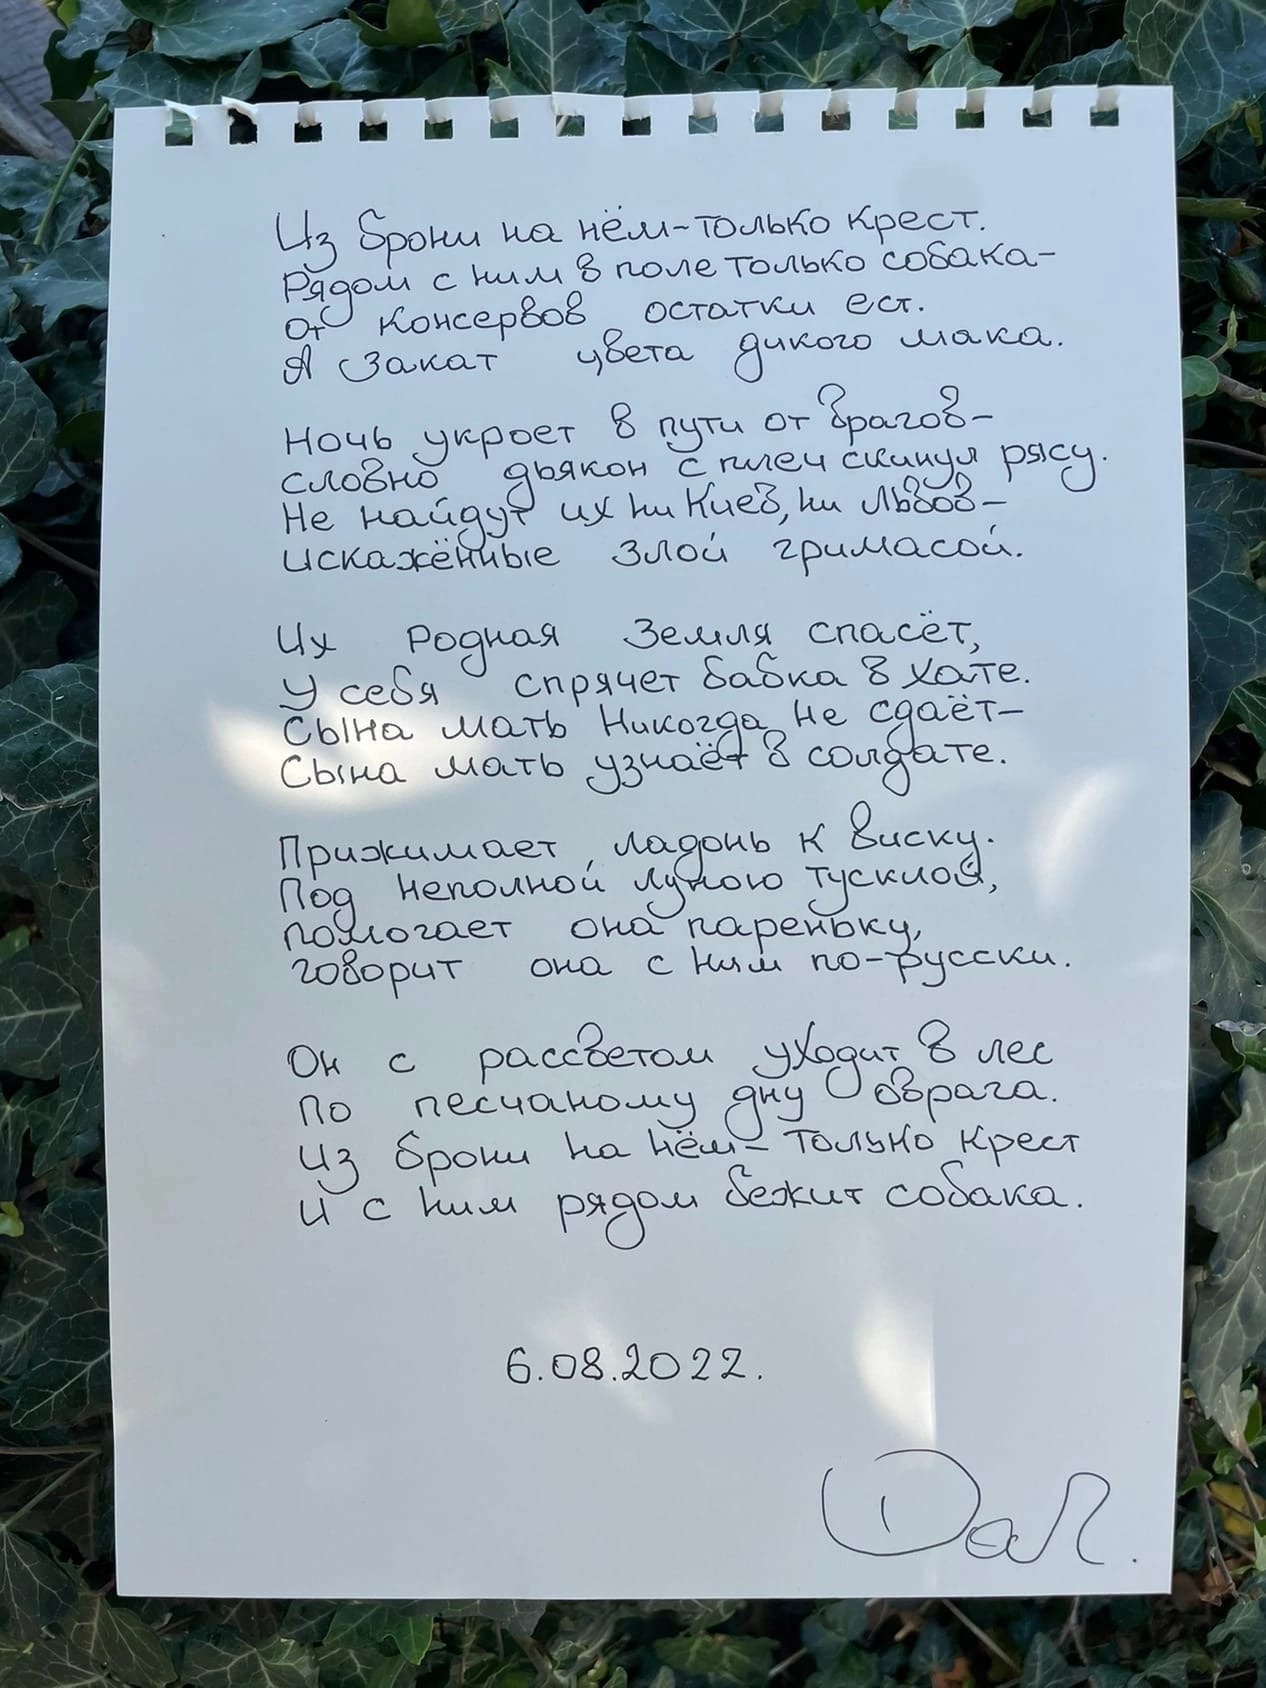 Из брони на нём-только крест.
Рядом с ним в поле только собака-
от консервов остатки ест.
А закат цвета дикого мака.
Ночь укроет в пути от врагов-
словно дьякон с плеч скинул рясу.
Не найдут их ни Киев, ни Львов-
искажённые злой гримасой.
Их Родная Земля спасёт,
У себя спрячет бабка в хате.
Сына мать никогда не сдаёт-
Сына мать узнаёт в солдате.
Прижимает ладонь к виску.
Под неполной луною тусклой,
помогает она пареньку,
говорит она с ним по-русски.
Он с рассветом уходит в лес
По песчаному дну оврага.
Из брони на нём-только крест
и с ним рядом бежит собака.
6.08.2022.
ДаЛ.